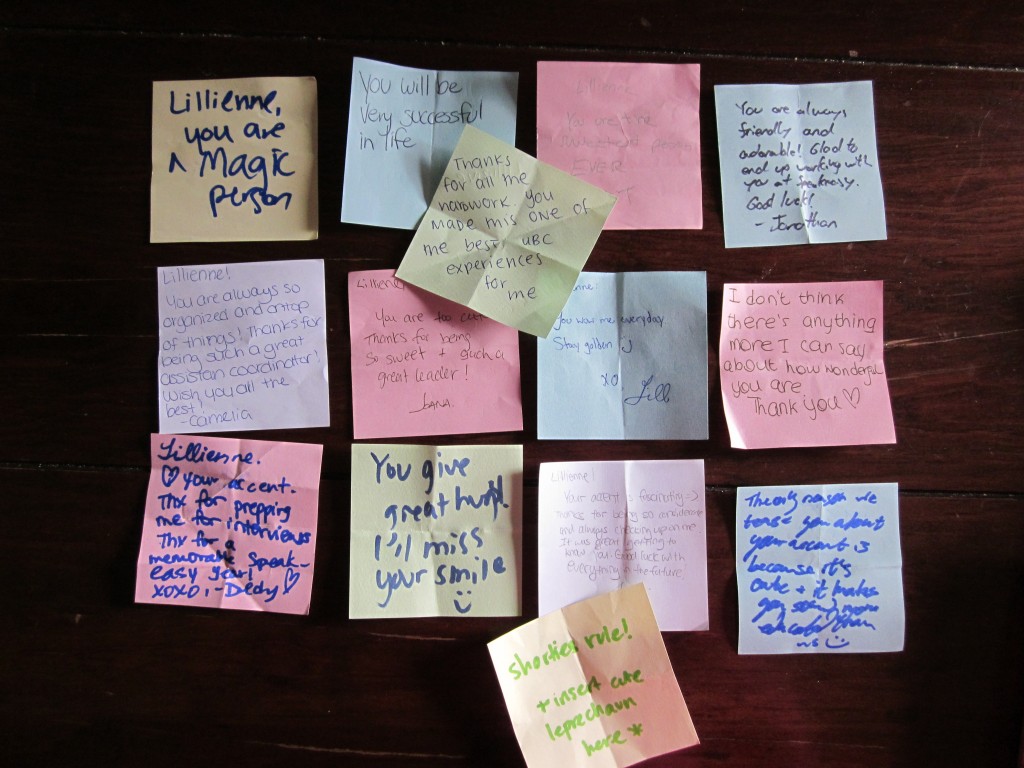 Lillienne,
you are
A Magic
person
You will be
very successful
in life
Thanks
for all the
hardwork. You
made this one of
the best UBC
experiences
for
me
Lillienne!
You are the
sweetest person
EVER
You are always
friendly and
adorable! Glad to
end up working with
you at Speakeasy.
Good luck!
- Jonathan
Lillienne!
You are always so
organized and ontop
of things! Thanks for
being such a great
assistan coordinator!
Wish you all the
best.
-Camelia
Lillienne
You are too cute
Thanks for being
so sweet + such a
great leader!
nne!
You wow me everyday
Stay golden :)
xo Jill
I don't think
there's anything
more I can say
about how wonderful
you are
Thank you ♡
Lillienne.
♡ your accent.
Thx for prepping
me for interviews
Thx for a
memorable Speak-
easy year!
xoxo, -Dedy ♡
You give
great hugs!
I'll miss
your smile
Lillienne!
Your accent is fascinating =)
Thanks for being so considerate
and always checking up on me
It was great getting to
know you. Good luck with
everything in the future
shorties rule!
*insert cute
leprechaun
here*
The only reason we
tease you about
your accent is
because it's
cute + it makes
you sound more
educated than
us :)